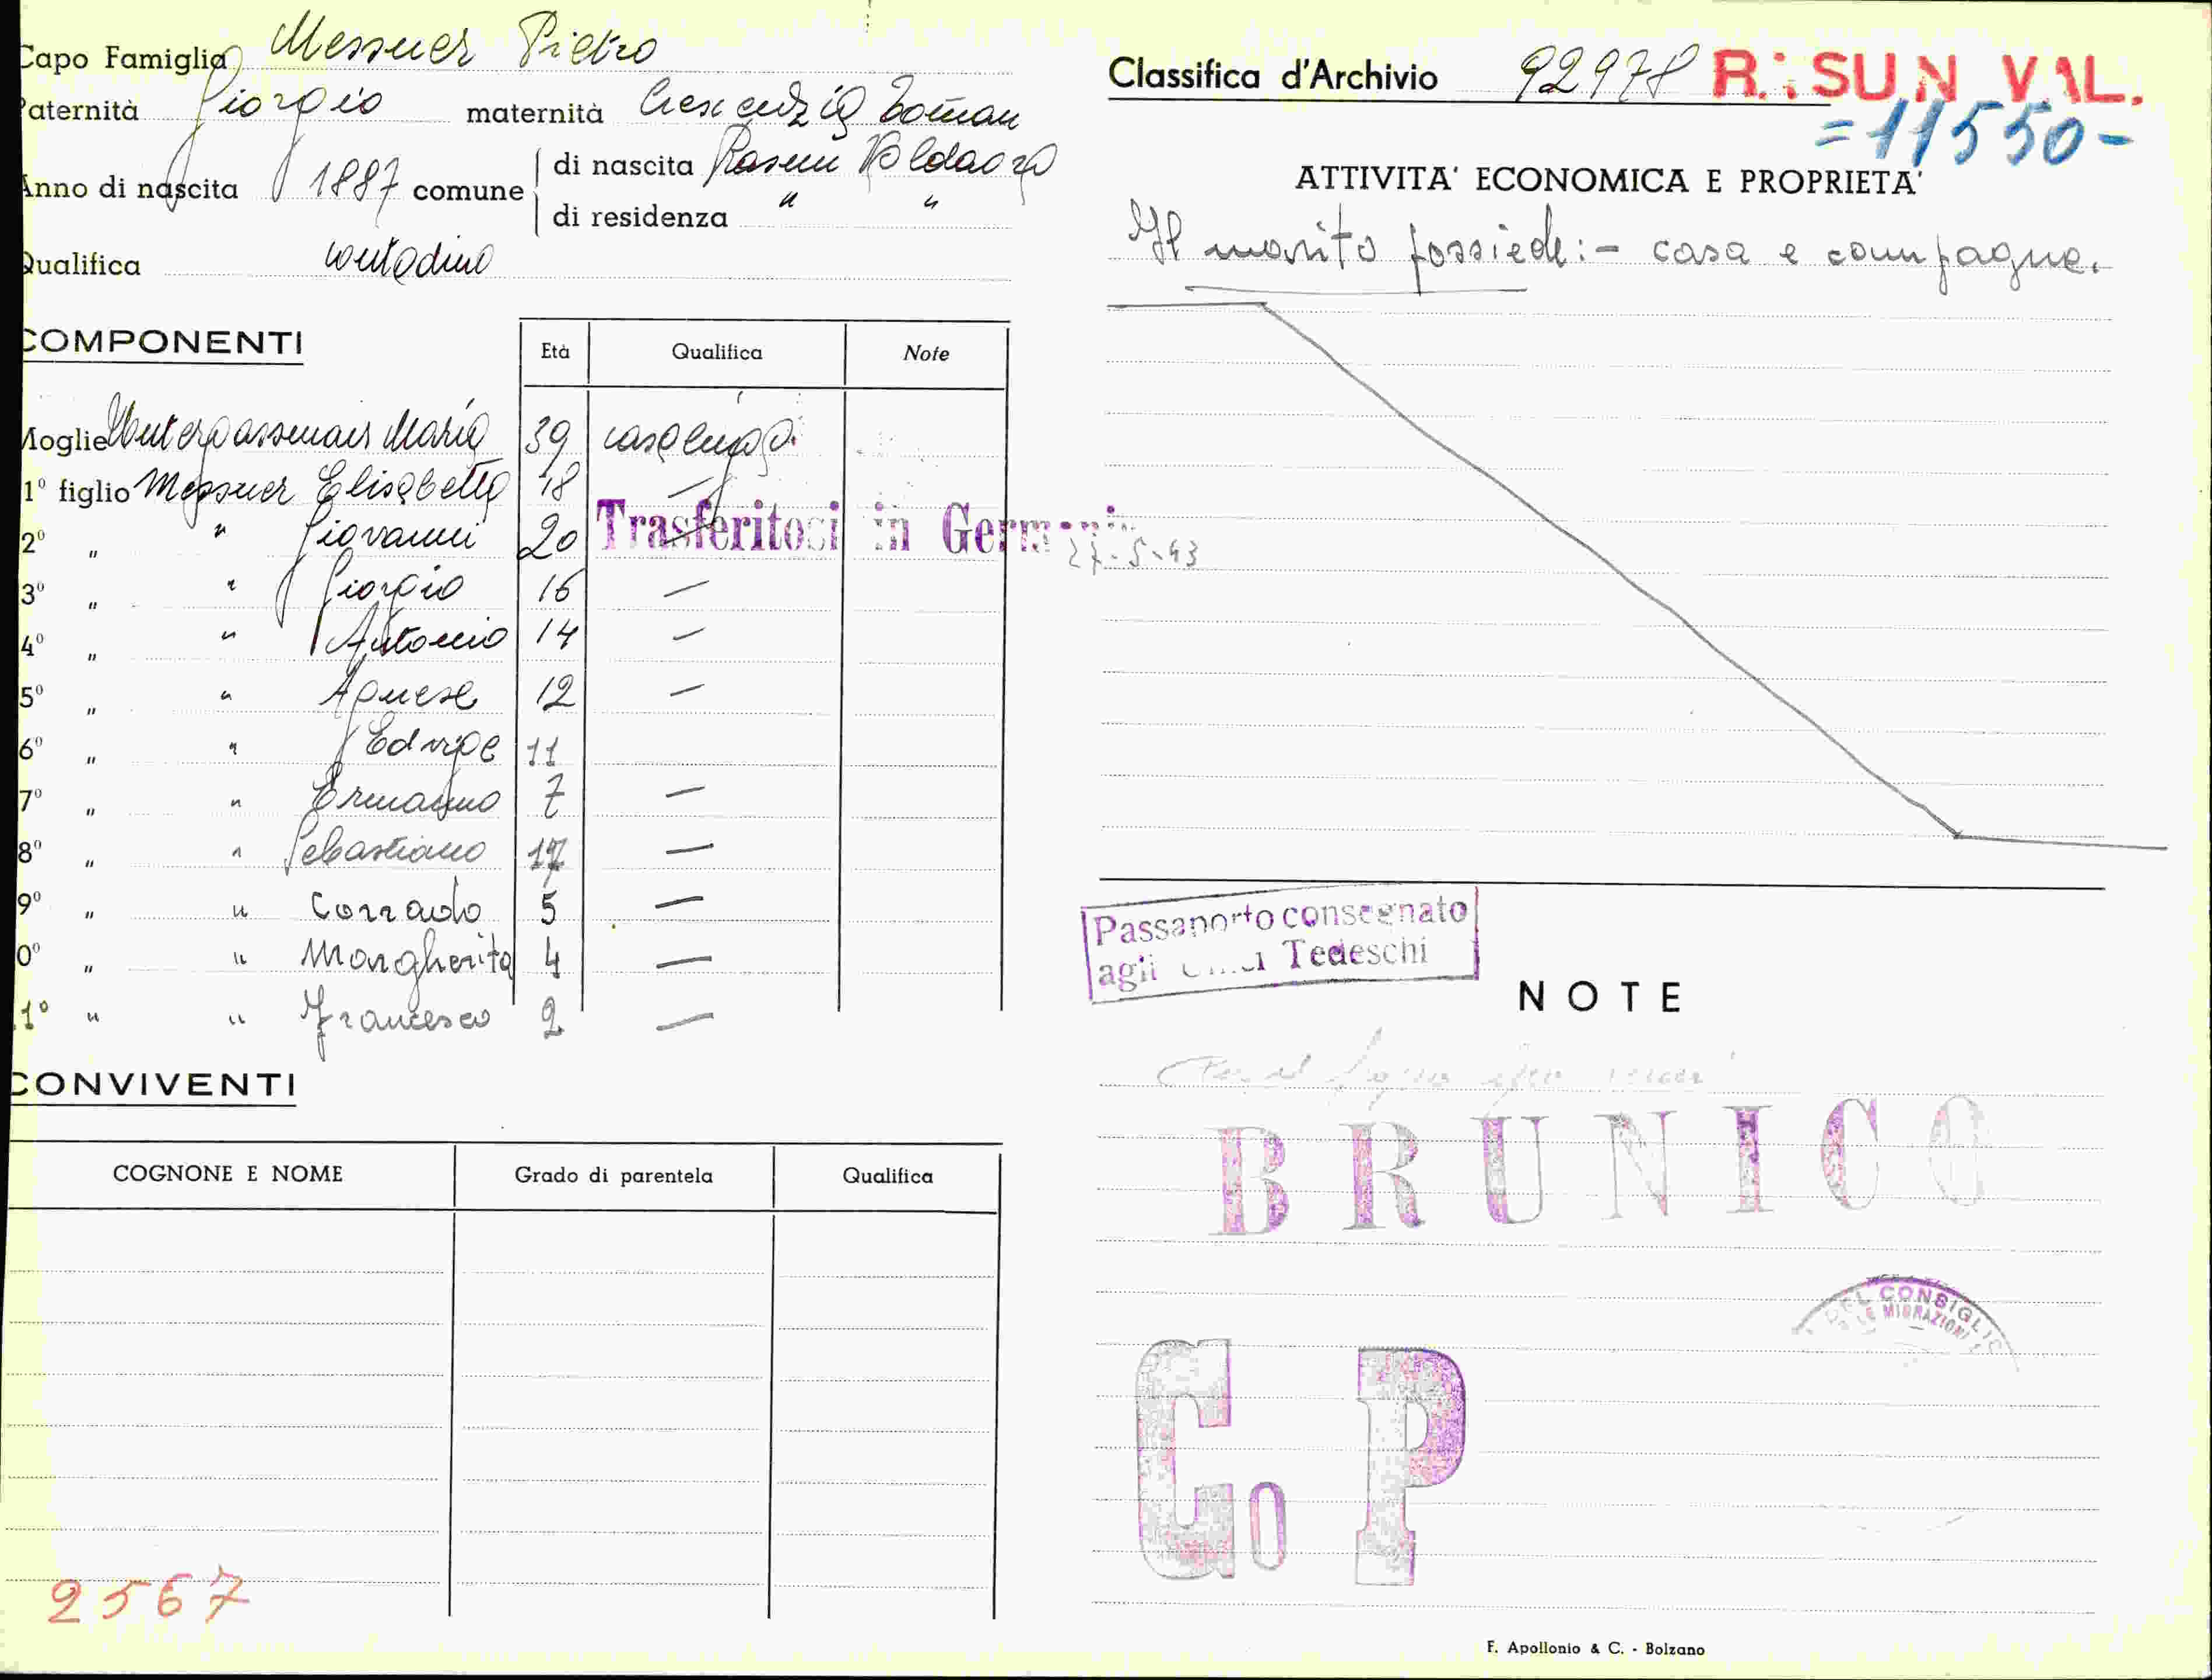 Capo Famiglia Messner Pietro
Paternità Giorgio maternità Crescenzia Toman
Anno di nascita 1887 comune di nascita Rasun Valdaora
di residenza " "
Qualifica contadino
COMPONENTI
Età Qualifica Note
Moglie Untergassmair Maria 39 casalinga
1° figlio Messner Elisabetta 18 —
2° " " Giovanni 20 — Trasferitosi in Germania 27-5-43
3° " " Giorgio 16 —
4° " " Antonio 14 —
5° " " Agnese 12 —
6° " " Edvige 11
7° " " Ermanno 7 —
8° " " Sebastiano 17 —
9° " " Corrado 5 —
0° " " Margherita 4 —
1° " " Francesco 2 —
CONVIVENTI
COGNONE E NOME Grado di parentela Qualifica
2567
Classifica d'Archivio 92978 R.: SUN VAL.
=11550-
ATTIVITA' ECONOMICA E PROPRIETA'
Il marito possiede:- casa e campagne.
Passaporto consegnato
agli Uffici Tedeschi
NOTE
BRUNICO
DEL CONSIGLIO
LE MIGRAZIONI
Co P
F. Apollonio & C. - Bolzano